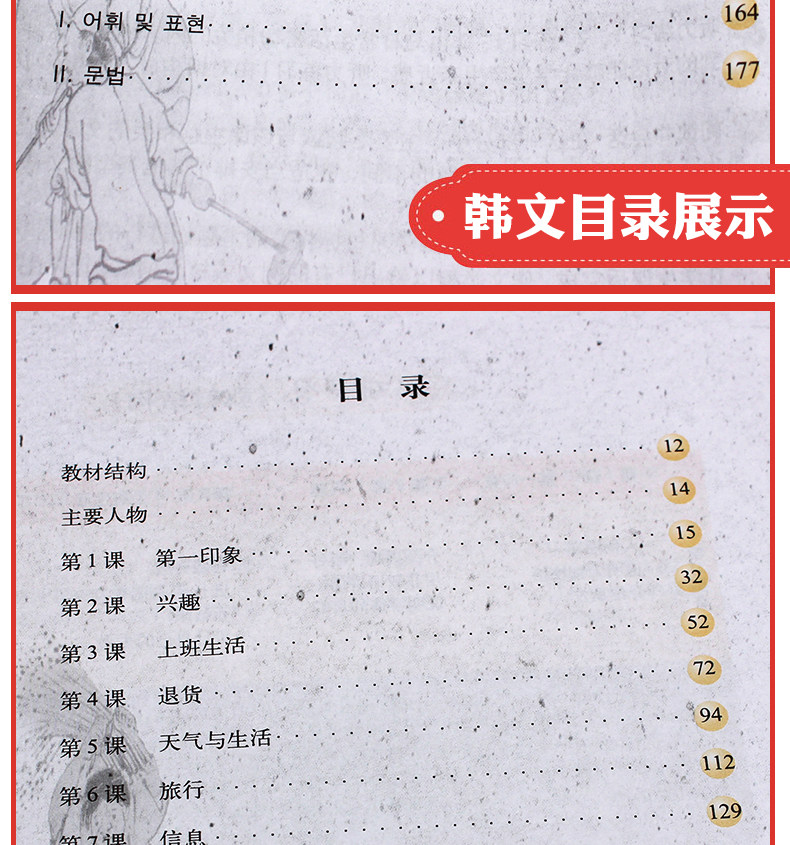 I. 어휘 및 표현 ········ 164
II. 문법 ········ 177
韩文目录展示
目 录
教材结构 ········ 12
主要人物 ········ 14
第 1 课 第一印象 ········ 15
第 2 课 兴趣 ········ 32
第 3 课 上班生活 ········ 52
第 4 课 退货 ········ 72
第 5 课 天气与生活 ········ 94
第 6 课 旅行 ········ 112
第 7 课 信息 ········ 129